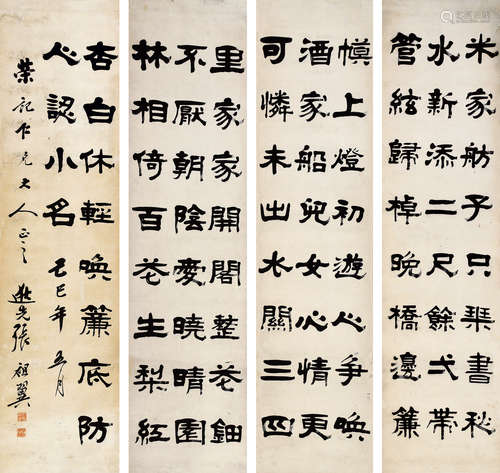 米家舫子只琹書秋
水新添二尺餘弌帶
管絃歸棹晚橋邊簾
幙上燈初遊人爭喚
酒家船兒女心情更
可憐未出水關三四
里家家開閣整花鈿
不厭朝陰愛曉晴園
林相倚百花生梨紅
杏白休輕喚簾底防
人認小名 乙巳年五月
榮記仁兄大人正之 逖先張祖翼